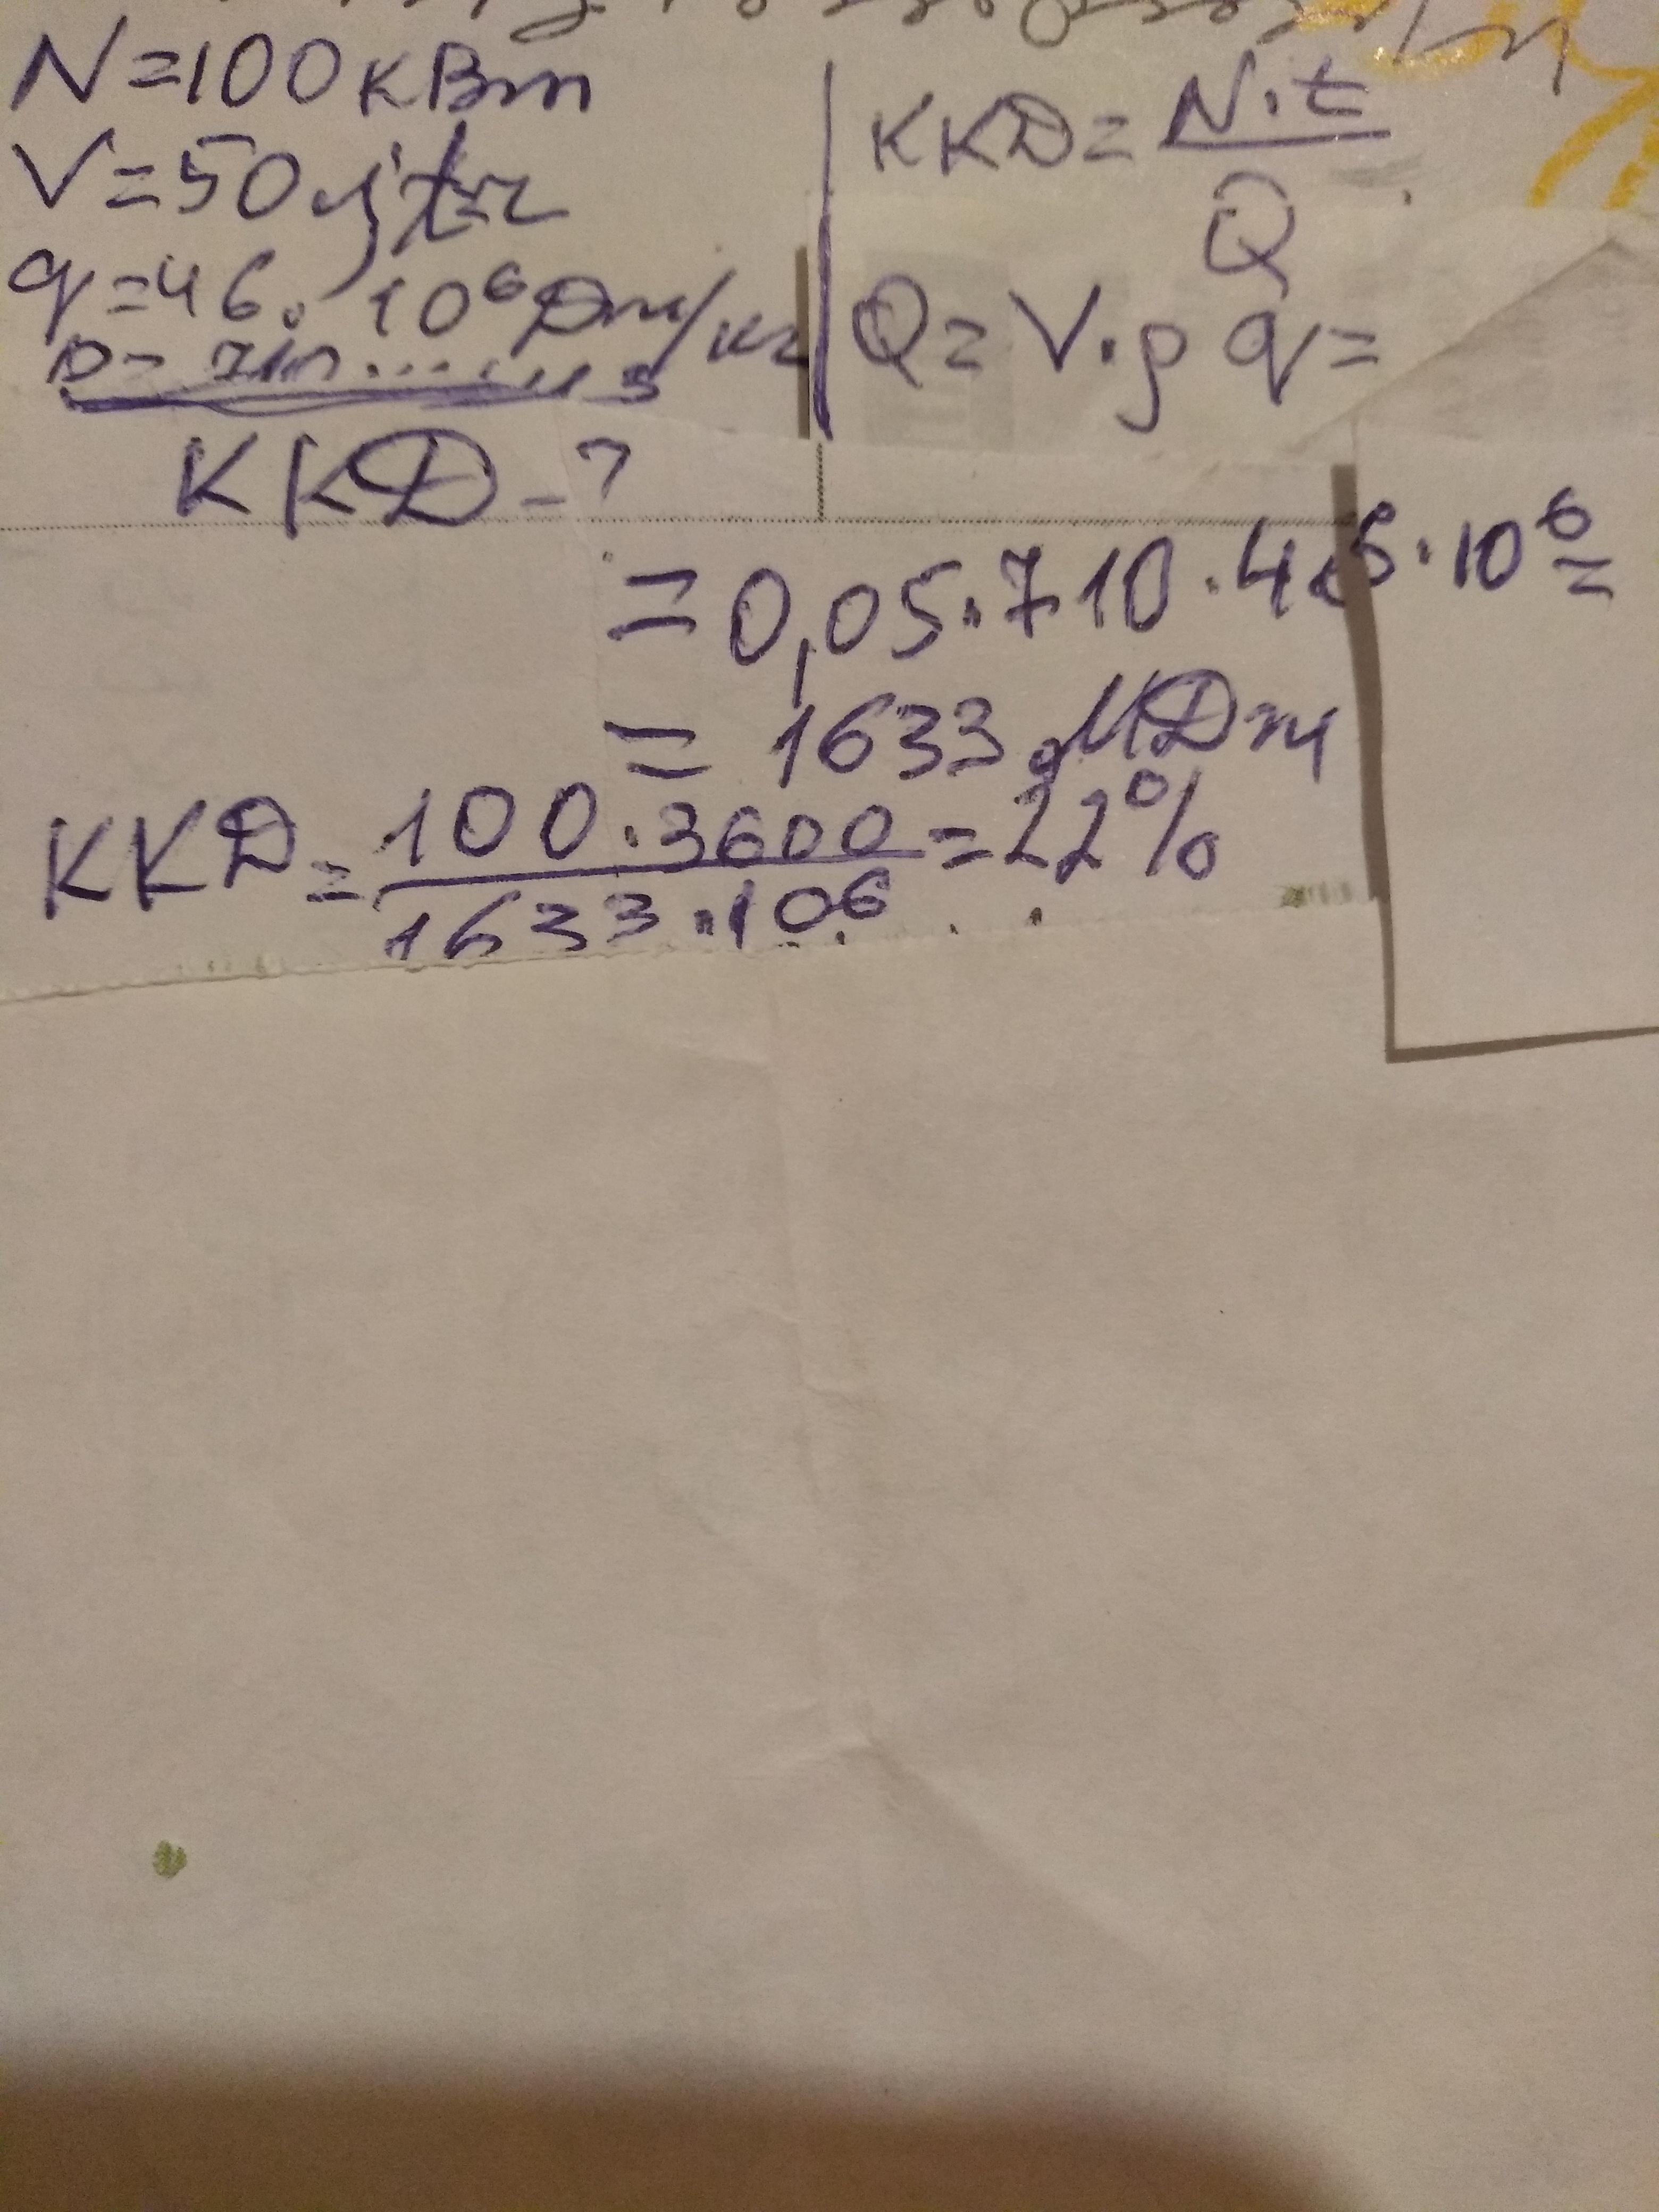 N=100кВт
V=50л; t=1г
q=46·10⁶Дж/кг
ККД-?
ККД=N·t/Q
Q=V·ρ q=
=0,05·710·46·10⁶=
=1633 МДж
ККД=100·3600/1633·10⁶=22%